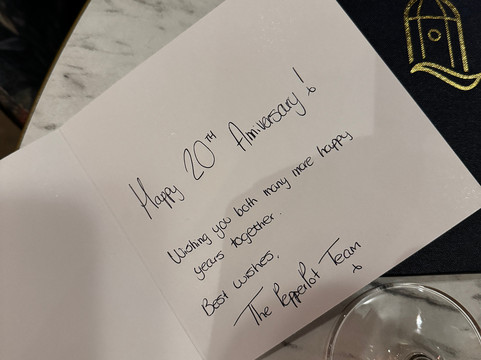 Happy 20TH Anniversary!
Wishing you both many more happy
years together.
Best wishes,
The PepperPot Team